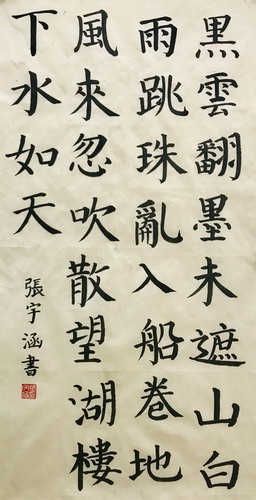 黑雲翻墨未遮山白
雨跳珠亂入船卷地
風來忽吹散望湖樓
下水如天
張宇涵書